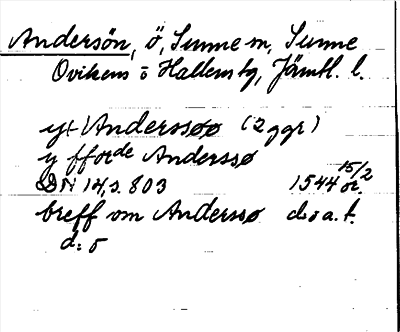 Andersön, ö, Sunne sn, Sunne
Ovikens o Hallens tg, Jämtl. l.
yt Anderssøø (2 ggr)
y fforde Anderssø
DN 14, s. 803 1544 15/2 or.
breff om Anderssø d:o a. t.
d:o